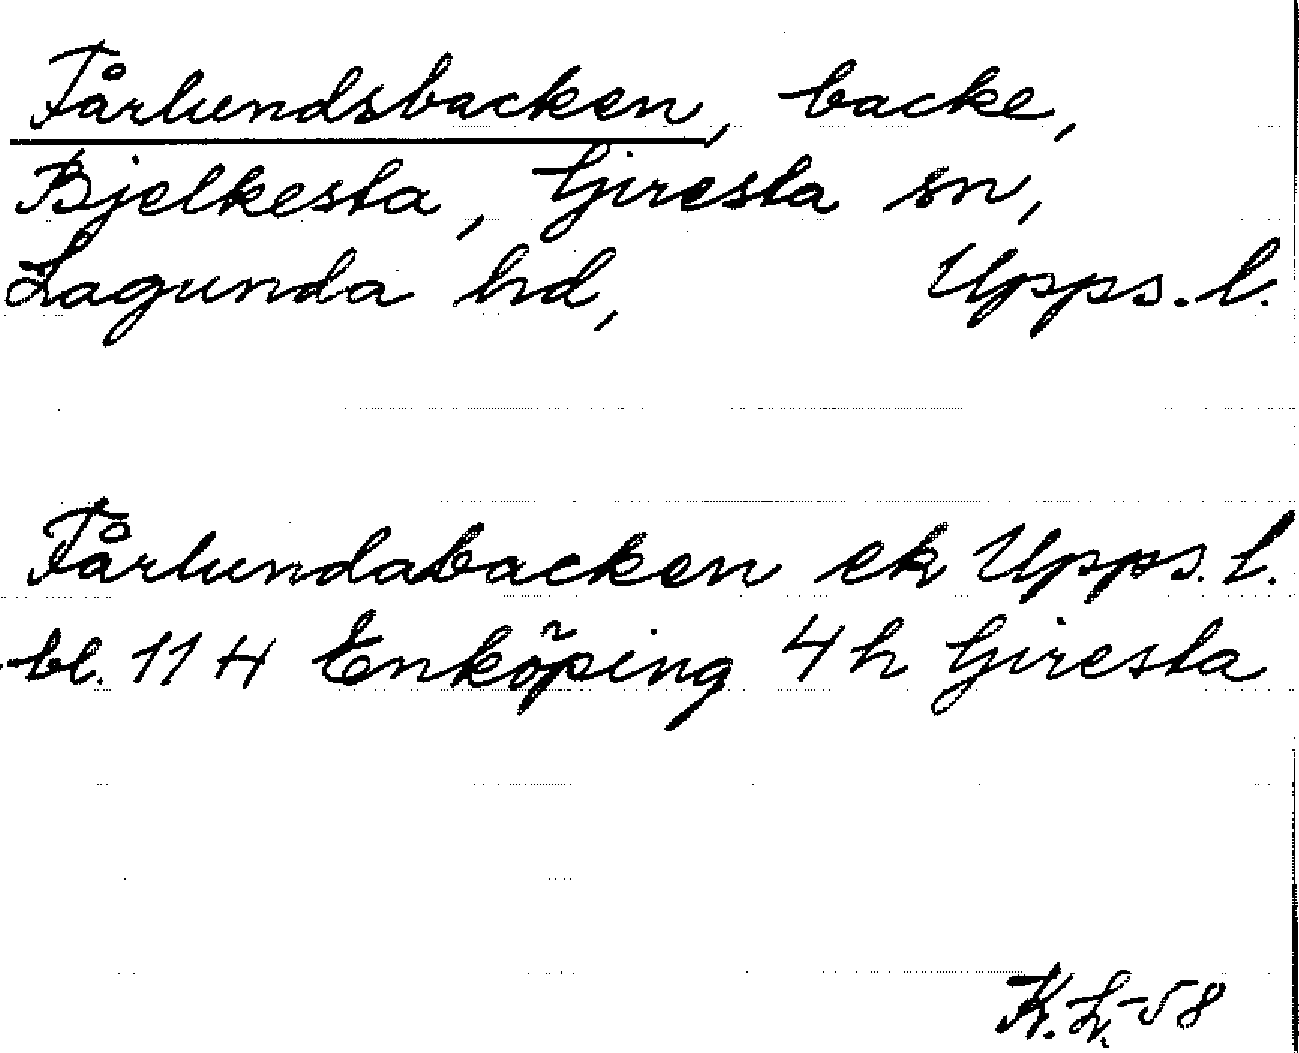 Fårlundsbacken, backe,
Bjelkesta, Giresta sn,
Lagunda hd, Upps. l.
Fårlundabacken ek Upps. l.
bl. 11 H Enköping 4 h Giresta
K. L. -58